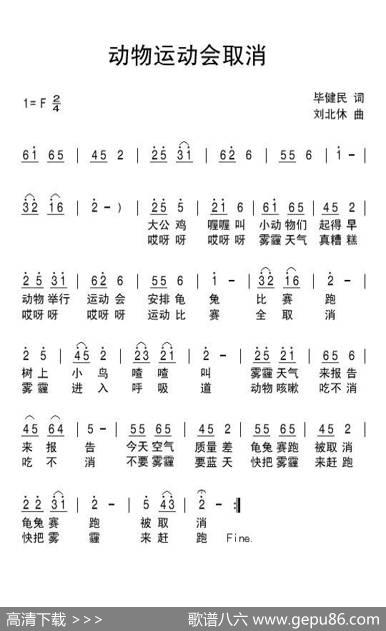 动物运动会取消
1=F 2/4
毕健民 词
刘北休 曲
61 65 | 45 2 | 25 31 | 62 6 | 55 6 | 1 - |
32 16 | 2 - ) | 25 5 | 21 6 | 61 65 | 45 2 |
大公 鸡 喔喔 叫 小动 物们 起得 早
哎呀 呀 哎呀 呀 雾霾 天气 真糟 糕
25 31 | 62 6 | 55 6 | 1 - | 32 16 | 2 - |
动物 举行 运动 会 安排 龟 兔 比 赛 跑
哎呀 呀 哎呀 呀 运动 比 赛 全 取 消
2 5 | 45 2 | 23 21 | 2 - | 25 21 | 65 6 |
树上 小 鸟 喳 喳 叫 雾霾 天气 来报 告
雾霾 进 入 呼 吸 道 动物 咳嗽 吃不 消
45 64 | 5 - | 55 65 | 45 2 | 55 65 | 45 2 |
来 报 告 今天 空气 质量 差 龟兔 赛跑 被取 消
吃 不 消 不要 雾霾 要蓝 天 快把 雾霾 来赶 跑
22 31 | 2 - | 5 43 | 2 - :‖
龟兔 赛 跑 被 取 消
快把 雾 霾 来 赶 跑 Fine.
高清下载 >>>
歌谱八六 www.gepu86.com